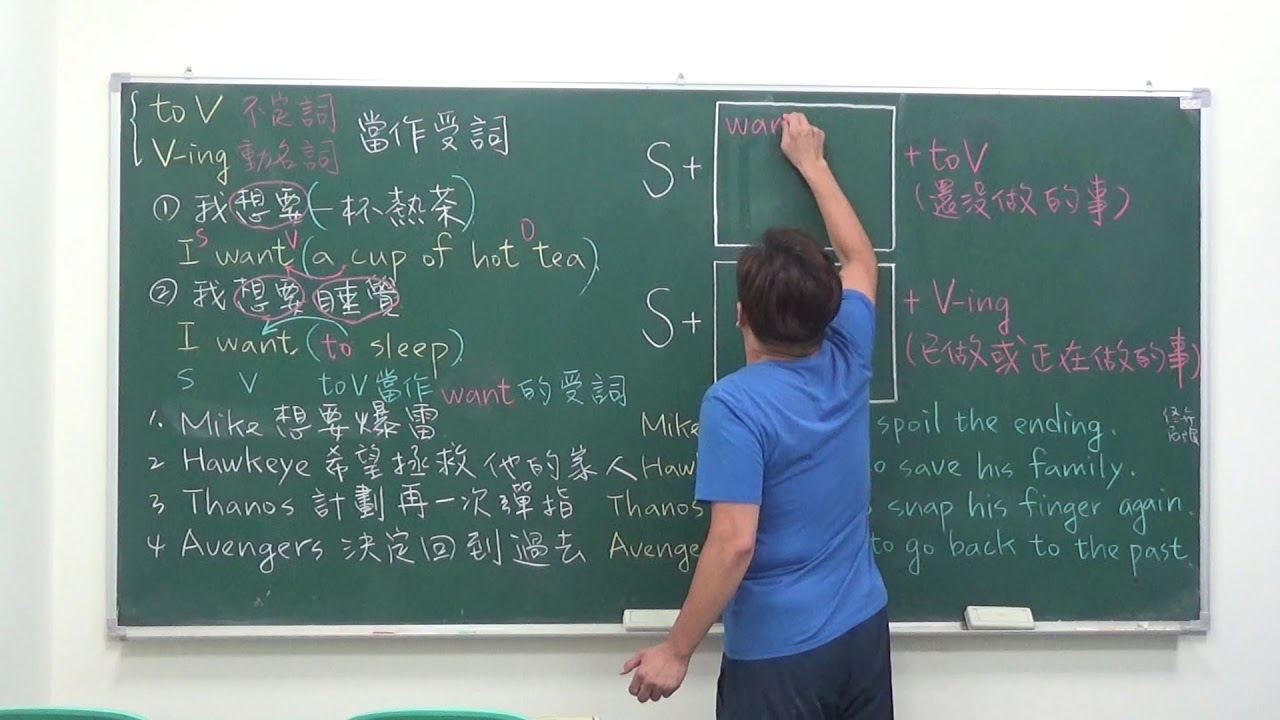 to V 不定詞
V-ing 動名詞
當作受詞
① 我想要(一杯熱茶)
S V O
I want (a cup of hot tea).
② 我想要睡覺
I want (to sleep).
S V toV當作want的受詞
1. Mike 想要爆雷
2 Hawkeye 希望拯救他的家人
3 Thanos 計劃再一次彈指
4 Avengers 決定回到過去
S+
wan
+ to V
(還沒做的事)
S+
+ V-ing
(已做或正在做的事)
Mike spoil the ending.
Haw o save his family.
Thanos snap his finger again.
Avenge to go back to the past